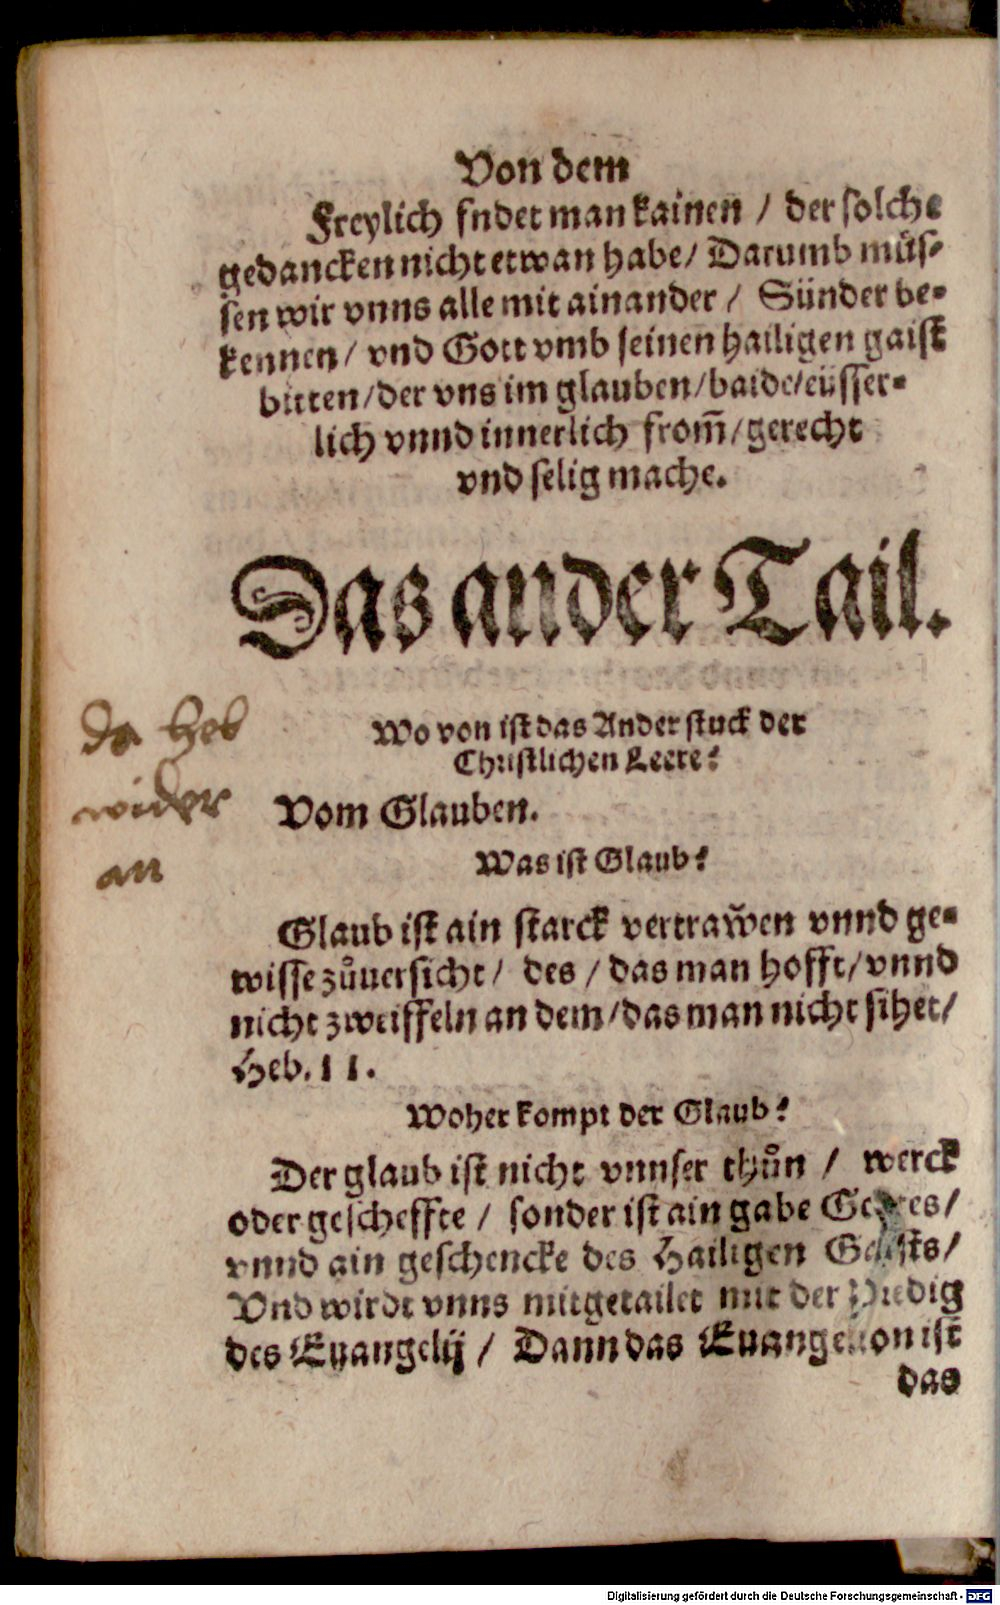 Von dem
Freylich fndet man kainen / der solche
gedancken nicht etwan habe / Darumb müs-
sen wir vnns alle mit ainander / Sünder be-
kennen / vnd Gott vmb seinen hailigen gaist
bitten / der vns im glauben / baide / eüsser-
lich vnnd innerlich from̃ / gerecht
vnd selig mache.
Das ander Tail.
da heb
wider
an
Wo von ist das Ander stuck der
Christlichen Leere?
Vom Glauben.
Was ist Glaub?
Glaub ist ain starck vertraw̃en vnnd ge-
wisse zůuersicht / des / das man hofft / vnnd
nicht zweiffeln an dem / das man nicht sihet /
Heb. 11.
Woher kompt der Glaub?
Der glaub ist nicht vnnser thůn / werck
oder gescheffte / sonder ist ain gabe Gottes /
vnnd ain geschencke des Hailigen Gaists /
Vnd wirdt vnns mitgetailet mit der Predig
des Euangelij / Dann das Euangelion ist
das
Digitalisierung gefördert durch die Deutsche Forschungsgemeinschaft - DFG